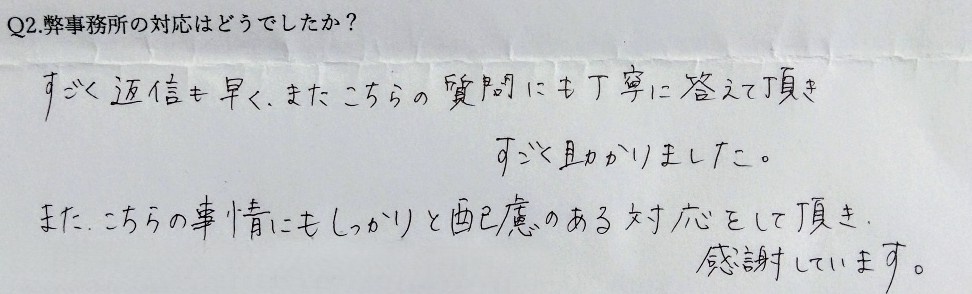 Q2.弊事務所の対応はどうでしたか？
すごく返信も早く、またこちらの質問にも丁寧に答えて頂き
すごく助かりました。
また、こちらの事情にもしっかりと配慮のある対応をして頂き、
感謝しています。